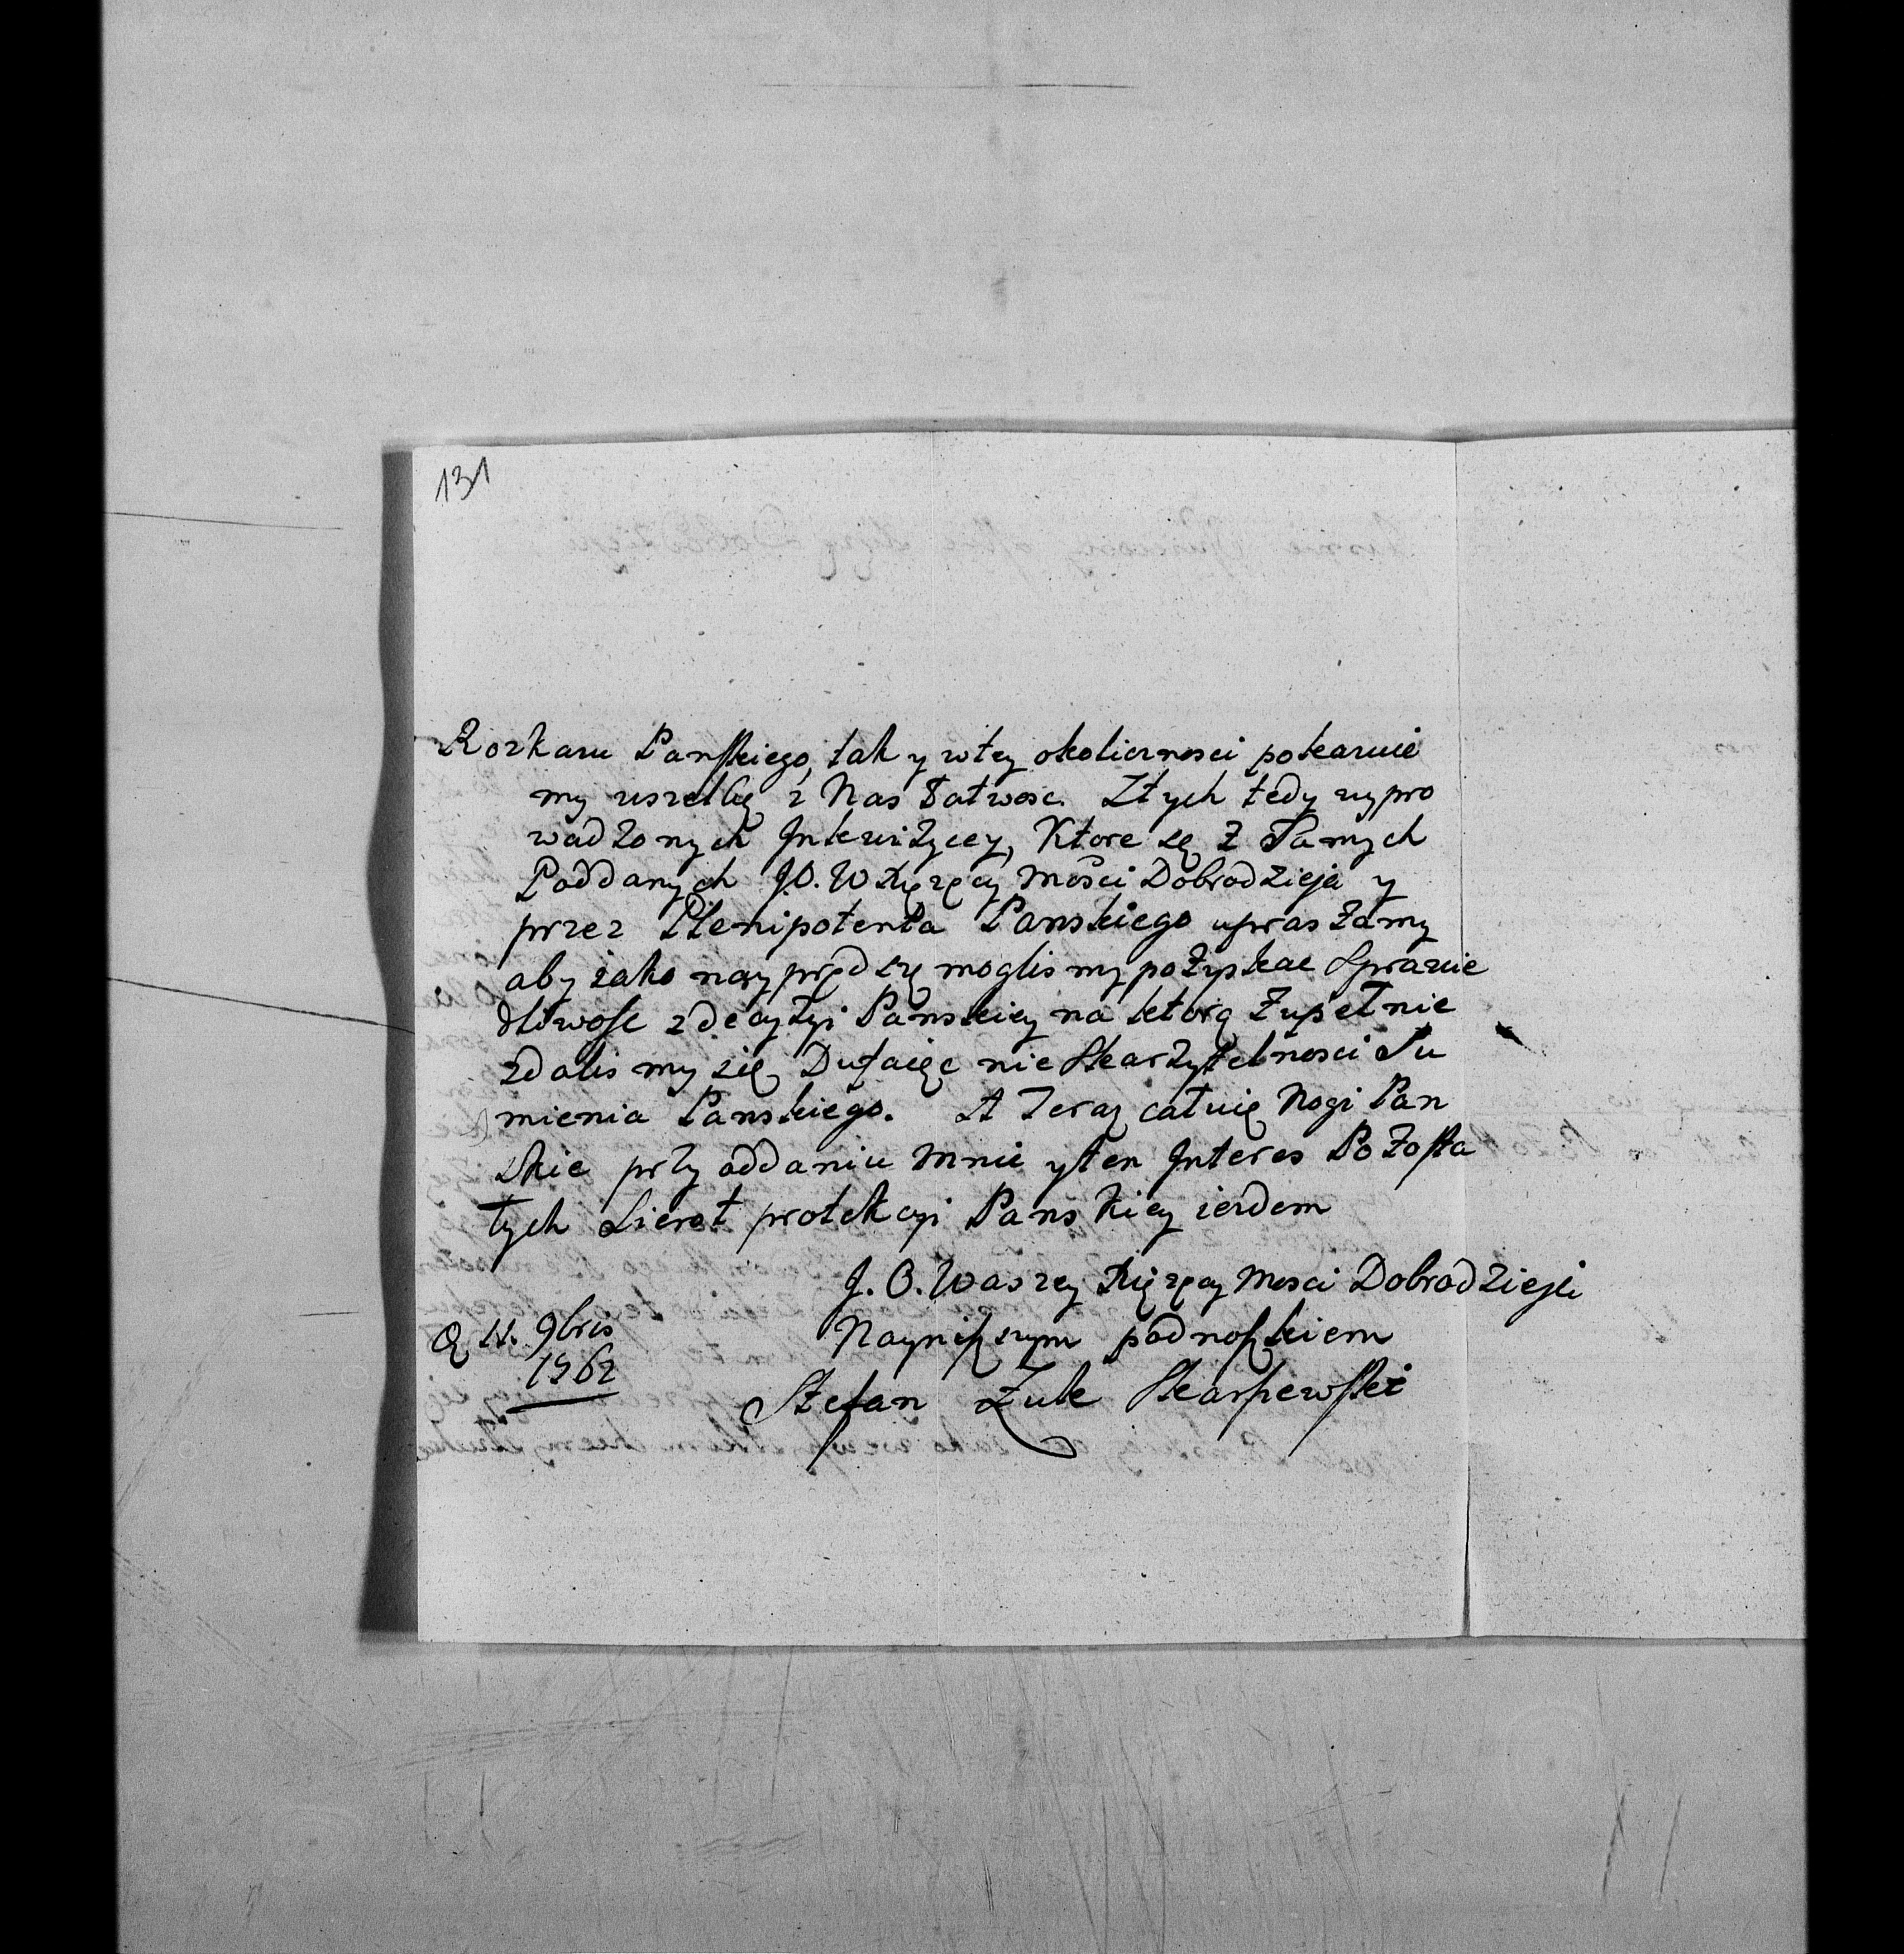 131
Rozkazu Panskiego, tak y wtey okolicznosci pokazuie
my wszelką z Nas Łatwosc. Ztych tedy wypro
wadzonych Inkwizycey, Ktore są z Samych
Poddanych J.O. W Xiązęcy Mosci Dobrodzieja y
przez Plenipotenta Panskiego upraszamy
aby iako nayprędzy moglismy pozyskac Sprawie
dliwosc zdecyzyi Panskiey na ktorą zupełnie
zdalis my się Dufaiąc nieskazytelnosci Su
mienia Panskiego. A Teraz całuię Nogi Pan
skie przy oddaniu mnie yten Interes Pozosta
łych Sierot protekcyi Panskiey iestem
J. O. Waszey Xiązęcy Mosci Dobrodzieja
Nayniszszym podnoszkiem
Stefan Zuk Skarszewski
D 11. 9bris
1762